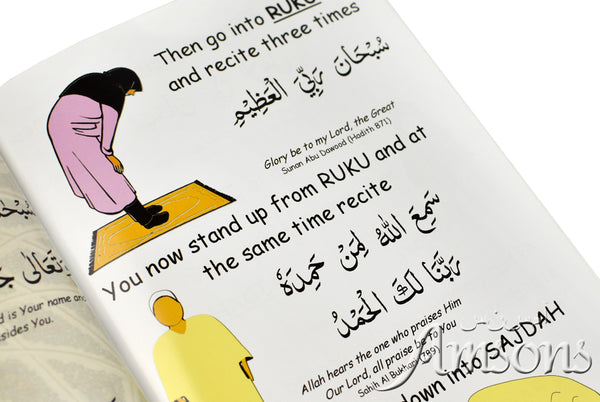 Then go into RUKU
and recite three times
سُبْحَانَ رَبِّيَ الْعَظِيْمِ
Glory be to my Lord, the Great
Sunan Abu Dawood (Hadith 871)
You now stand up from RUKU and at
the same time recite
سَمِعَ اللّٰهُ لِمَنْ حَمِدَهٗ
رَبَّنَا لَكَ الْحَمْدُ
Allah hears the one who praises Him
Our Lord, all praise be to You
Sahih Al Bukhari (789)
down into SAJDAH
d is Your name and
sides You.
Amsons